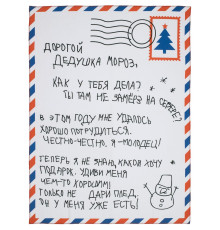 Дорогой
Дедушка Мороз,
Как у тебя дела?
Ты там не замёрз на севере?
В этом году мне удалось
хорошо потрудиться.
Честно-честно, я - молодец!
Теперь я не знаю, какой хочу
подарок. Удиви меня
чем-то хорошим!
Только не дари плед.
Он у меня уже есть!